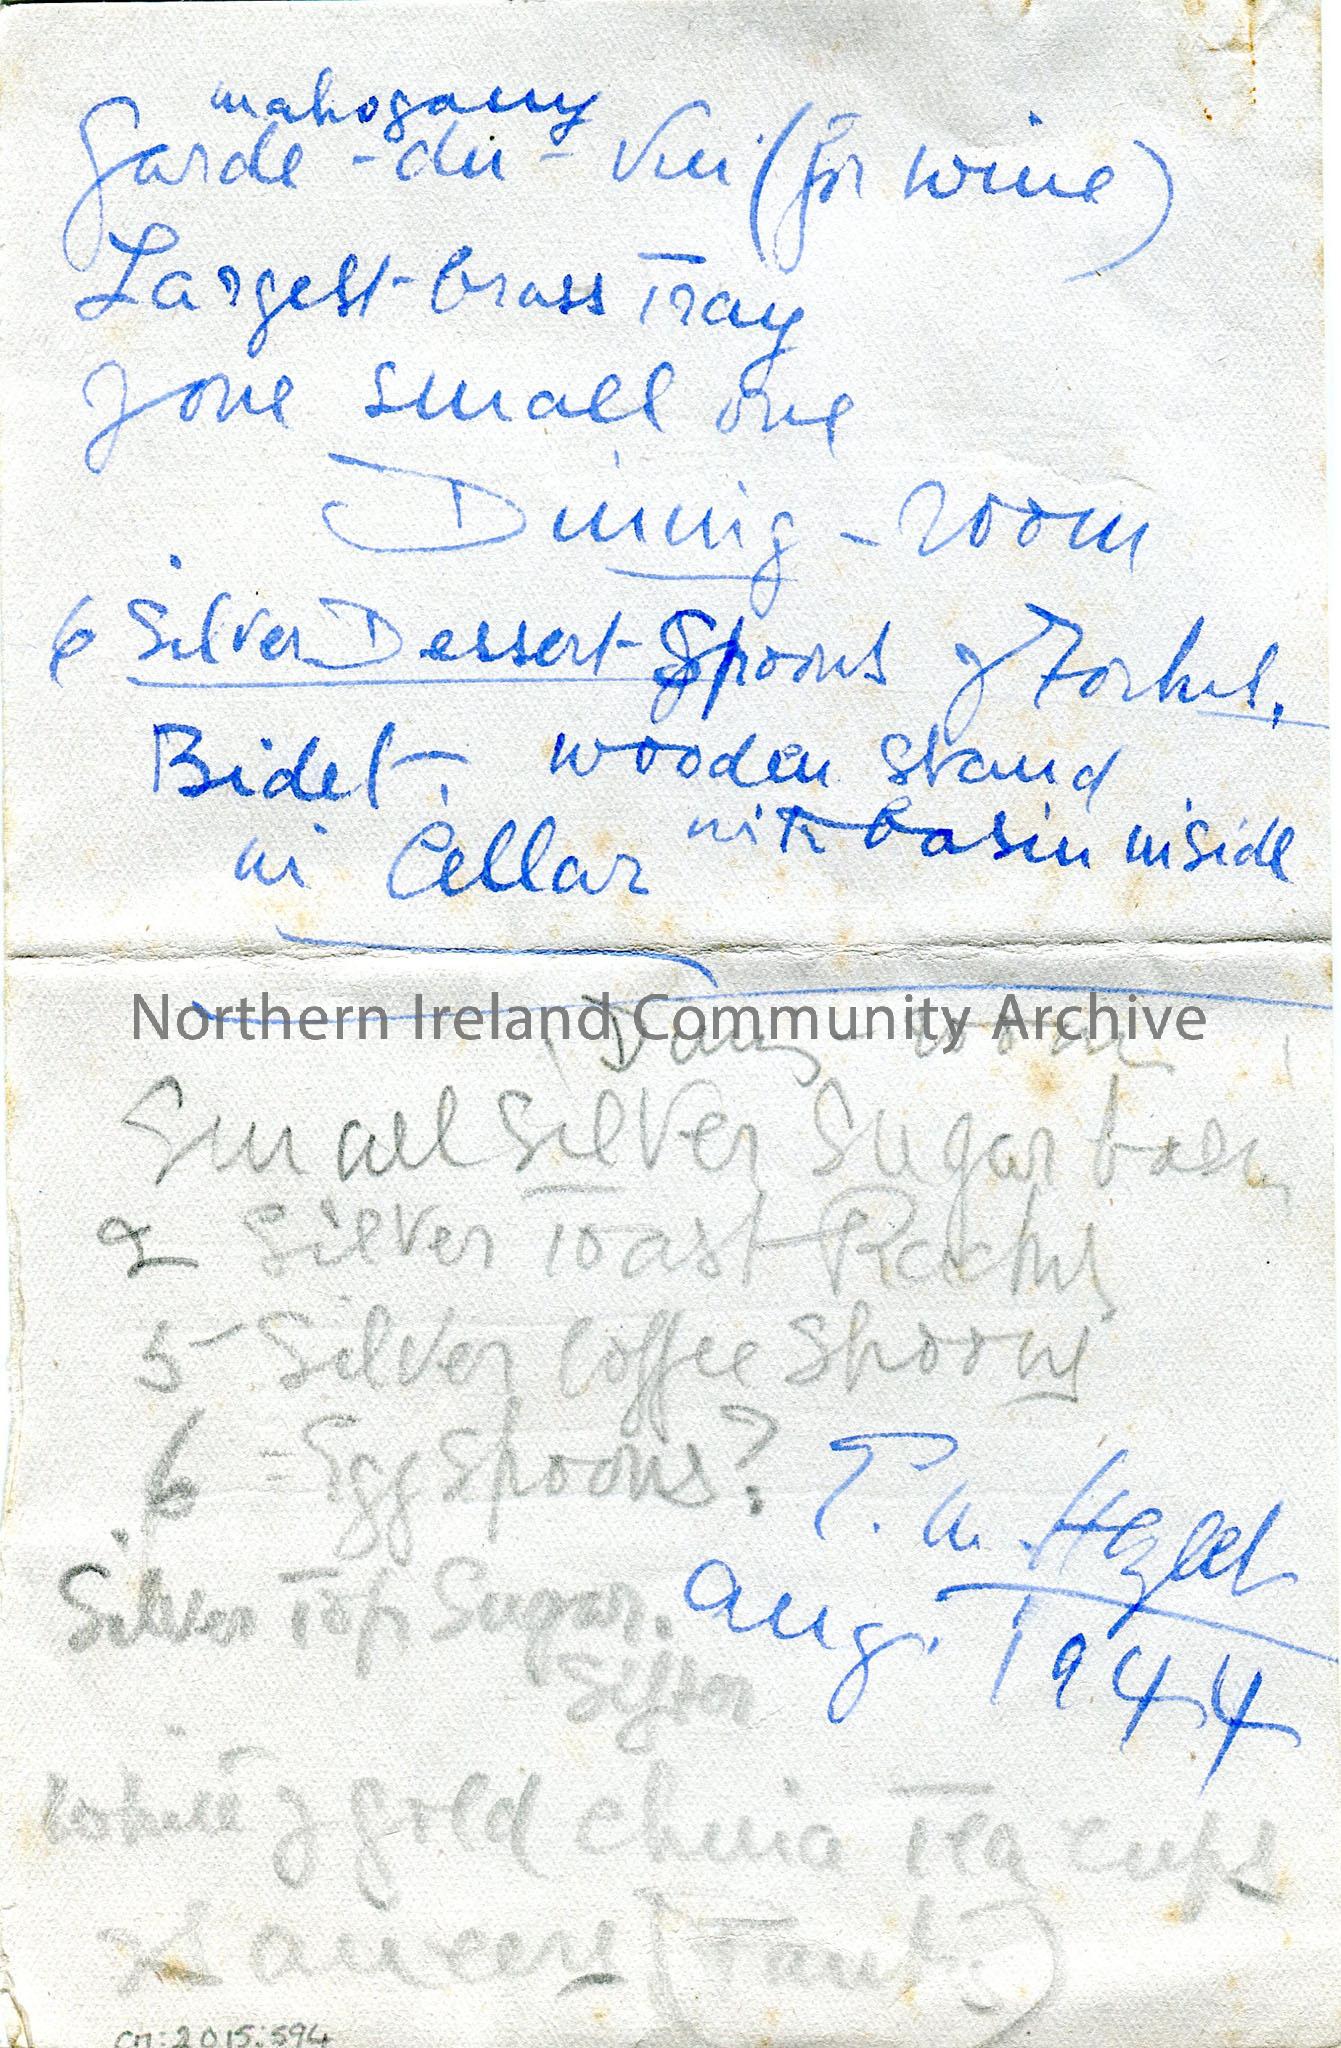 mahogany
Garde-du-Vin (for wine)
Largest brass Tray
& one small one
Dining-room
6 Silver Dessert Spoons & Forks.
Bidet. wooden stand
with basin inside
in Cellar
Northern Ireland Community Archive
room
Small Silver Sugar basin
2 Silver Toast Racks
5 Silver Coffee Spoons
6 = Egg Spoons?
T. M. Hezlet
Aug. 1944
Silver Top Sugar.
Sifter
White & gold china Tea cups
& Saucers
cm:2015:594